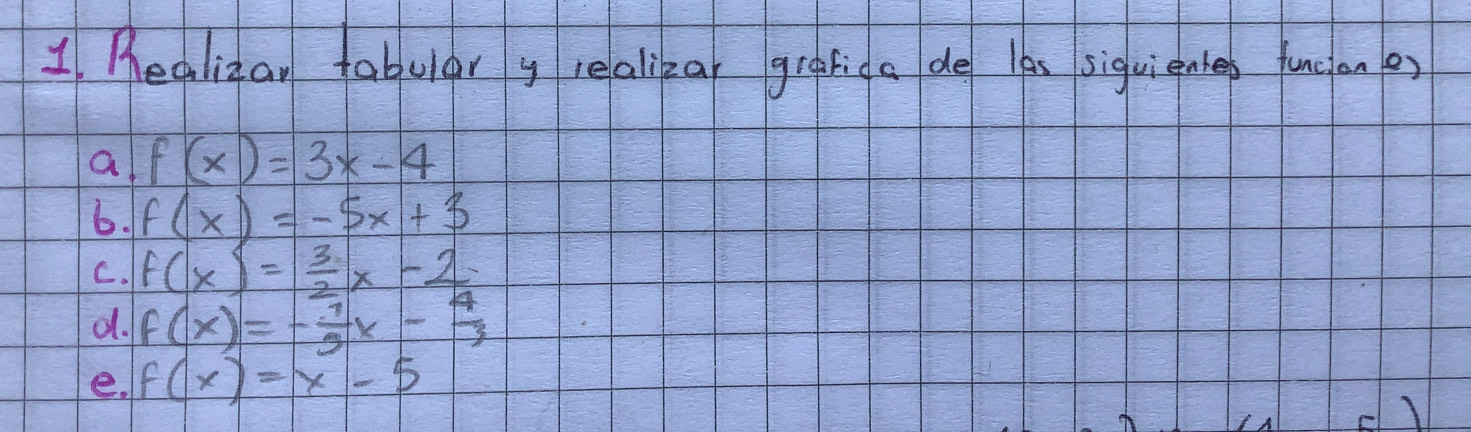 1. Realizar tabular y realizar grafica de las siguientes funciones
a. f(x) = 3x - 4
b. f(x) = -5x + 3
c. f(x) = 3/2 x - 2
d. f(x) = - x - 4/3
e. f(x) = x - 5